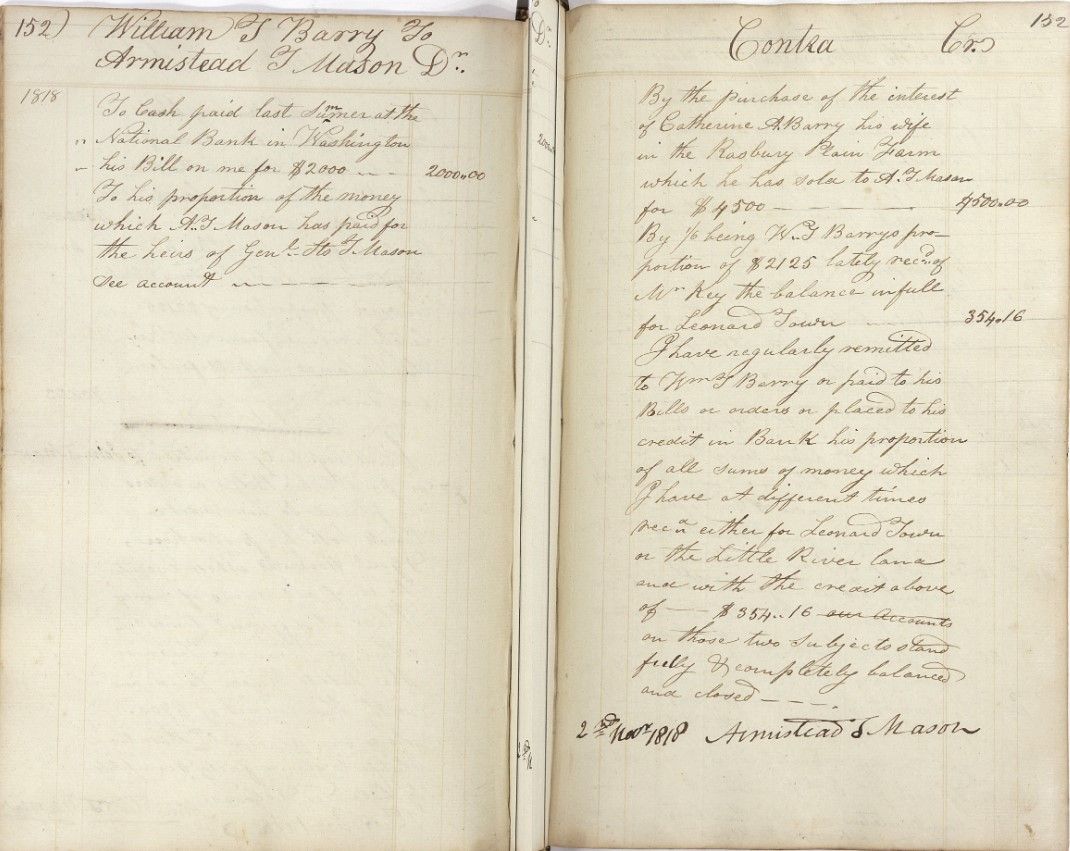 152) William T Barry To
Armistead T Mason Dr.
1818
To Cash paid last Sumer at the
" National Bank in Washington
" his Bill on me for $2000 — — 2000.00
To his proportion of the money
which A. T Mason has paid for
the heirs of Genl. Sto T Mason
see account — — — — —
Contra Cr. 152
By the purchase of the interest
of Catherine A. Barry his wife
in the Rasbury Plain Farm
which he has sold to A. T Mason
for $4500 — 4500.00
By being W. T Barrys pro-
portion of $2125 lately recd. of
Mr Key the balance in full
for Leonard Town — 354.16
I have regularly remitted
to Wm T Barry or paid to his
Bills or orders or placed to his
credit in Bank his proportion
of all sums of money which
I have at different times
recd either for Leonard Town
or the Little River land
and with the credit above
of — $354..16 our Accounts
on those two subjects stand
fully & completely balanced
and closed — — — .
2nd Novr 1818 Armistead T Mason